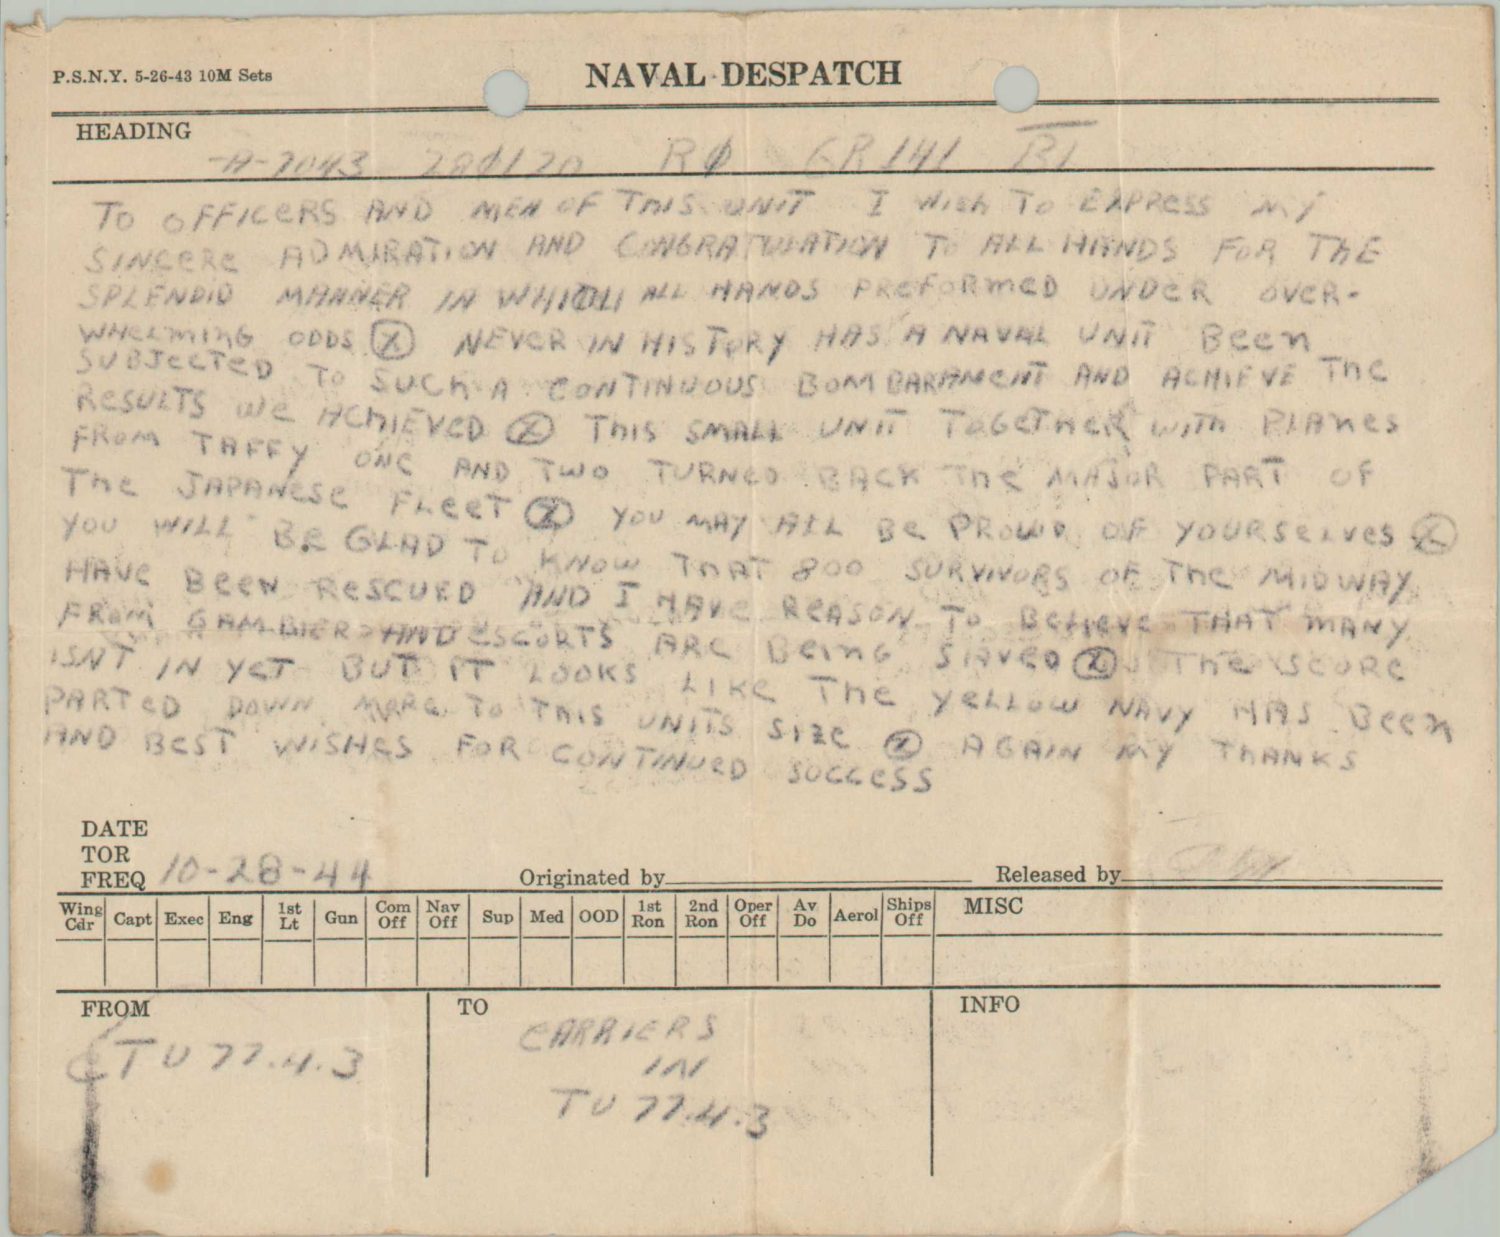 P.S.N.Y. 5-26-43 10M Sets
NAVAL DESPATCH
HEADING
-A-7043 280120 RØ GR141 BT
TO OFFICERS AND MEN OF THIS UNIT I WISH TO EXPRESS MY
SINCERE ADMIRATION AND CONGRATULATION TO ALL HANDS FOR THE
SPLENDID MANNER IN WHICH ALL HANDS PREFORMED UNDER OVER-
WHELMING ODDS Ⓧ NEVER IN HISTORY HAS A NAVAL UNIT BEEN
SUBJECTED TO SUCH A CONTINUOUS BOMBARDMENT AND ACHIEVE THE
RESULTS WE ACHIEVED Ⓧ THIS SMALL UNIT TOGETHER WITH PLANES
FROM TAFFY ONE AND TWO TURNED BACK THE MAJOR PART OF
THE JAPANESE FLEET Ⓧ YOU MAY ALL BE PROUD OF YOURSELVES Ⓧ
YOU WILL BE GLAD TO KNOW THAT 800 SURVIVORS OF THE MIDWAY
HAVE BEEN RESCUED AND I HAVE REASON TO BELIEVE THAT MANY
FROM GAMBIER AND ESCORTS ARE BEING SAVED Ⓧ THE SCORE
ISNT IN YET BUT IT LOOKS LIKE THE YELLOW NAVY HAS BEEN
PARTED DOWN MORE TO THIS UNITS SIZE Ⓧ AGAIN MY THANKS
AND BEST WISHES FOR CONTINUED SUCCESS
DATE
TOR
FREQ 10-28-44 Originated by Released by
Wing Cdr Capt Exec Eng 1st Lt Gun Com Off Nav Off Sup Med OOD 1st Ron 2nd Ron Oper Off Av Do Aerol Ships Off MISC
FROM TO INFO
CTU 77.4.3
CARRIERS
IN
TU 77.4.3